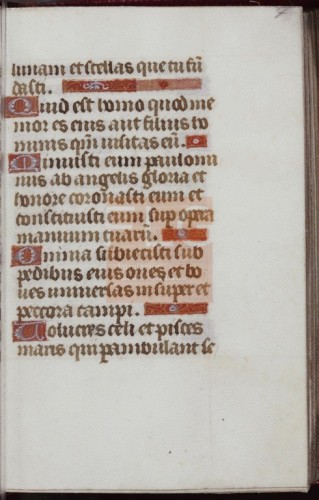 lunam et stellas que tu fū
dasti.
Quid est homo quod me
mor es eius aut filius ho
minis qm̄ visitas eū.
Minuisti eum paulomi
nus ab angelis gloria et
honore coronasti eum et
constituisti eum sup opera
manuum tuarū.
Omnia subiecisti sub
pedibus eius oues et bo
ues vniuersas insuper et
peccora campi.
Uolucres celi et pisces
maris qui pambulant se